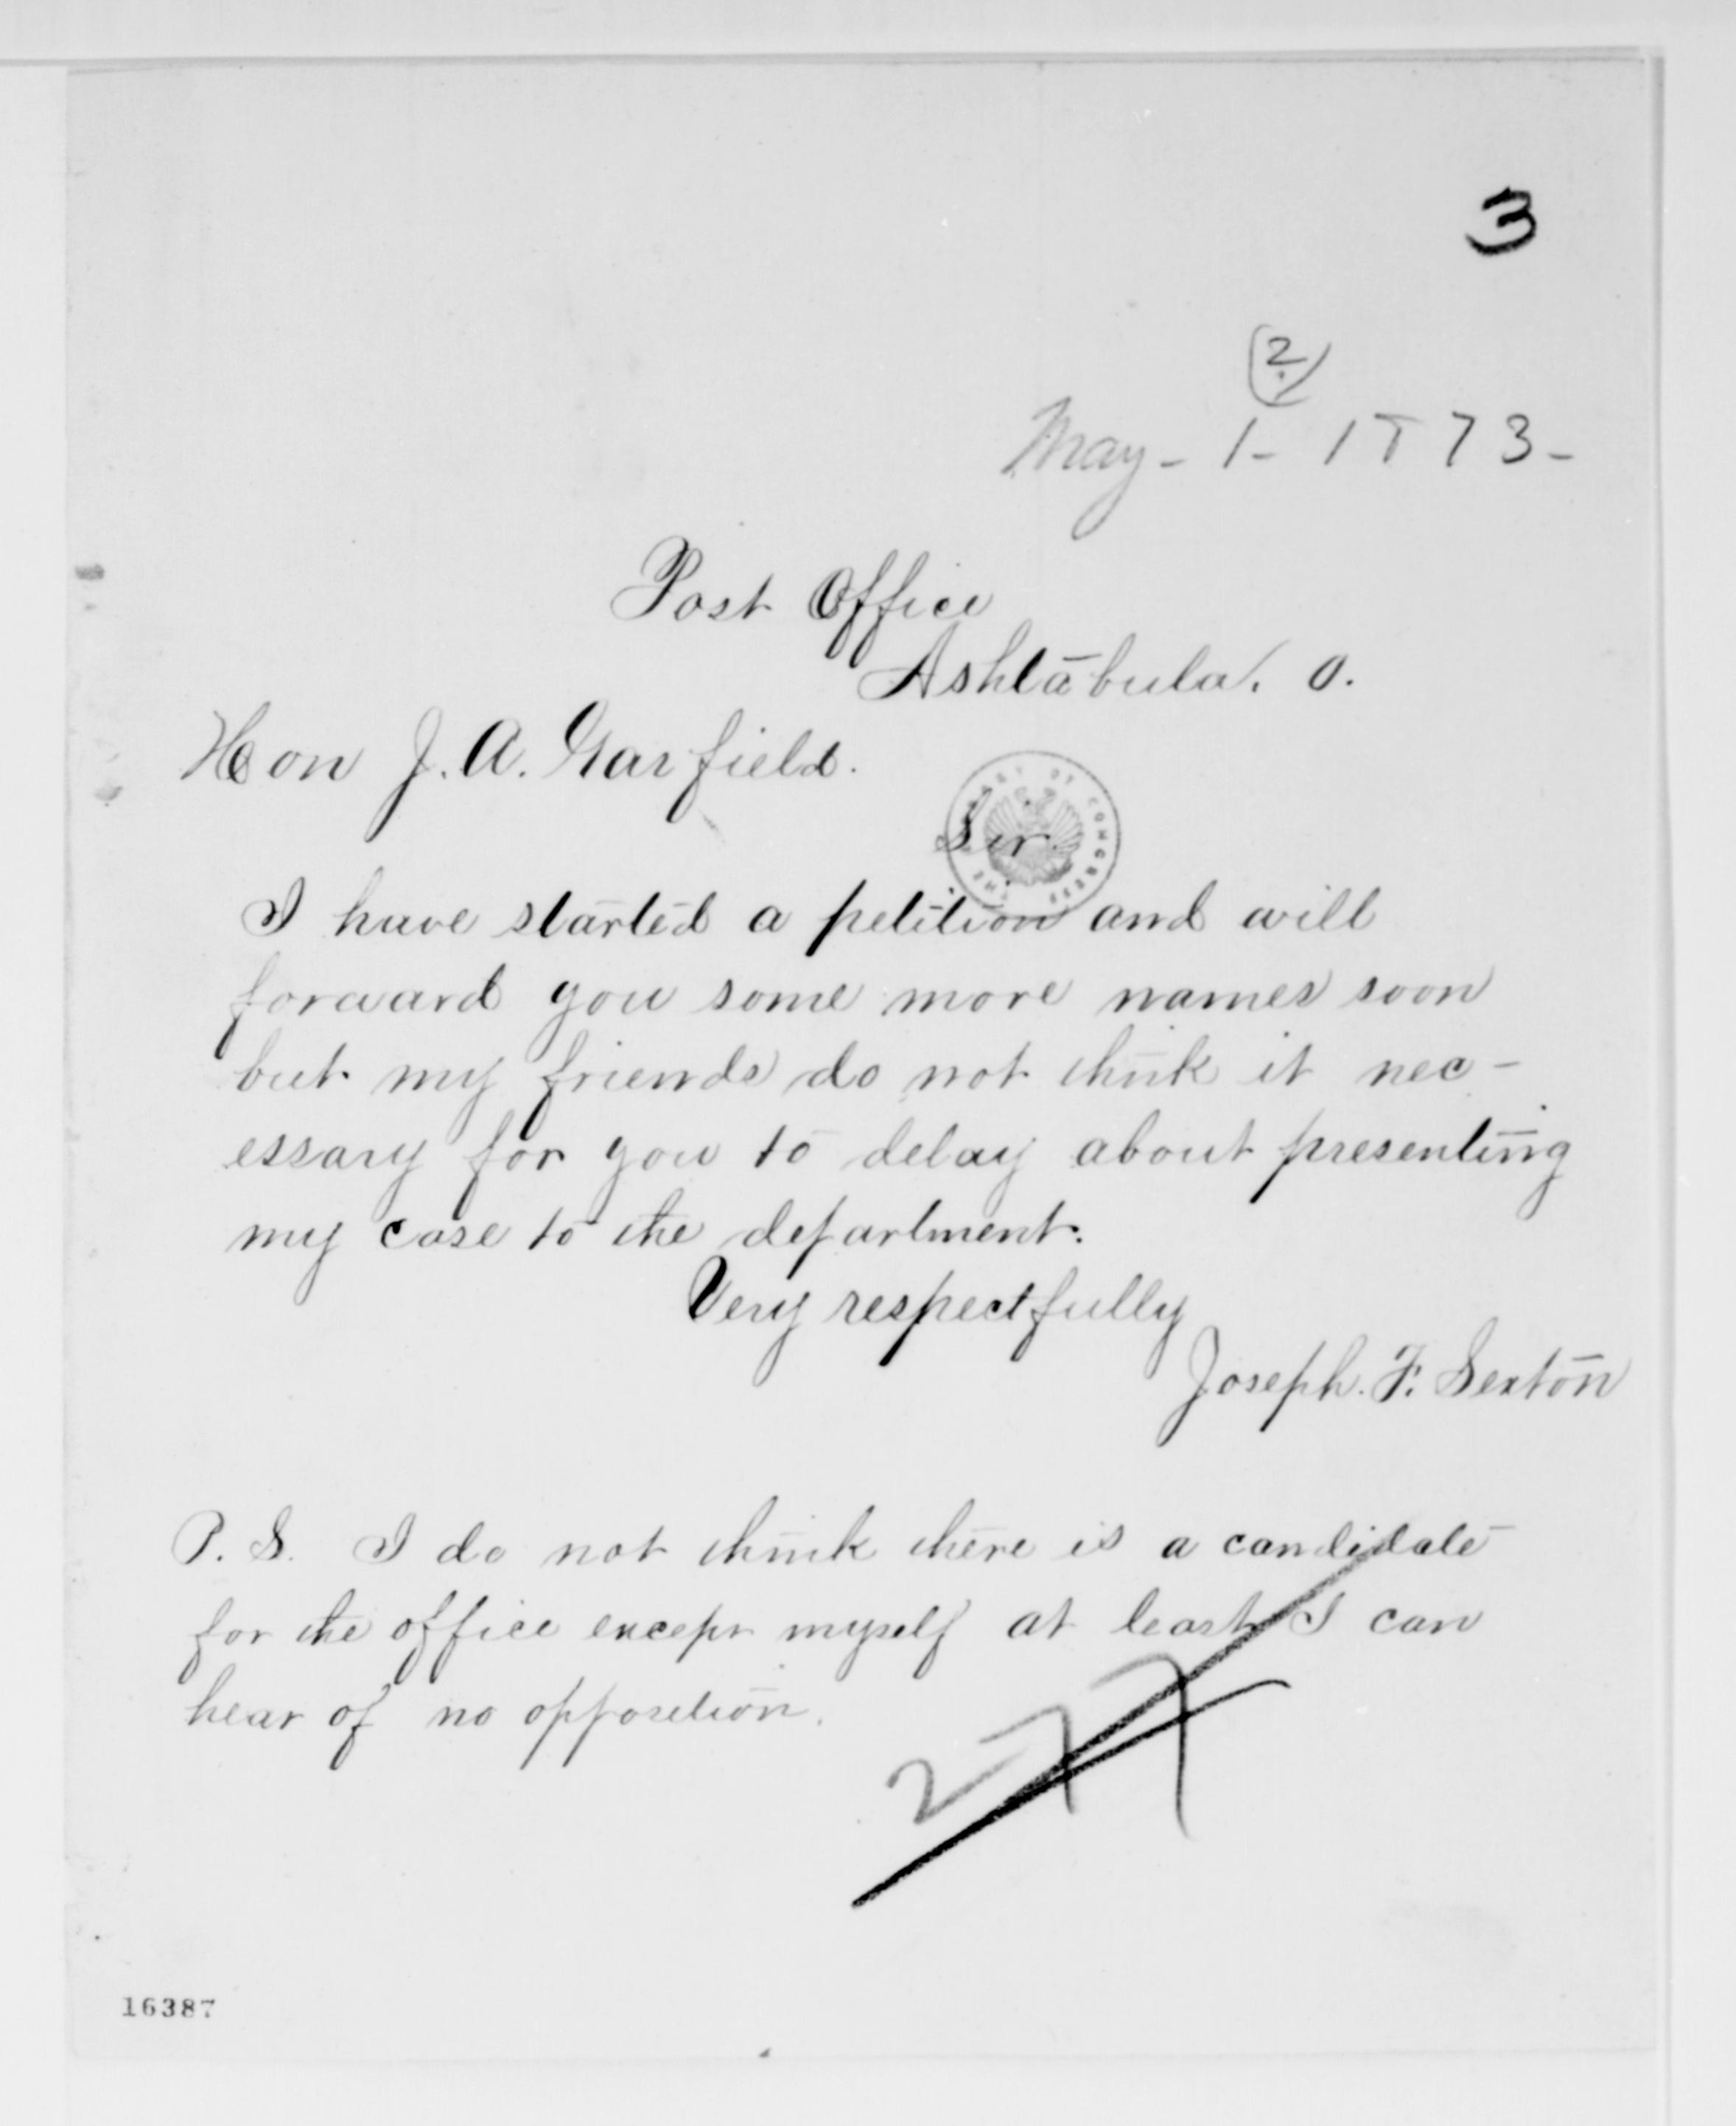 3
(?)
May - 1 - 1873 -
Post Office
Ashtabula. O.
Hon J. A. Garfield.
Sir
THE LIBRARY OF CONGRESS
I have started a petition and will
forward you some more names soon
but my friends do not think it nec-
essary for you to delay about presenting
my case to the department.
Very respectfully
Joseph. F. Sexton
P. S. I do not think there is a candidate
for the office except myself at least I can
hear of no opposition.
277
16387